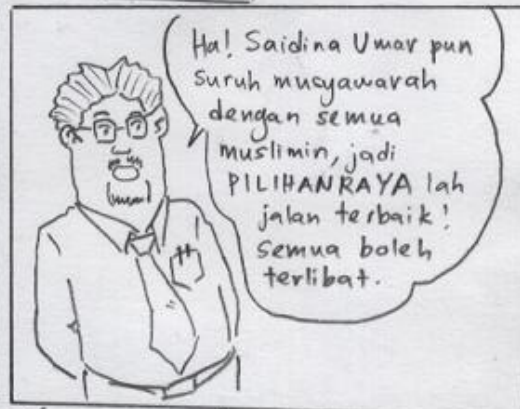 Ha! Saidina Umar pun
suruh musyawarah
dengan semua
muslimin, jadi
PILIHANRAYA lah
jalan terbaik!
semua boleh
terlibat.